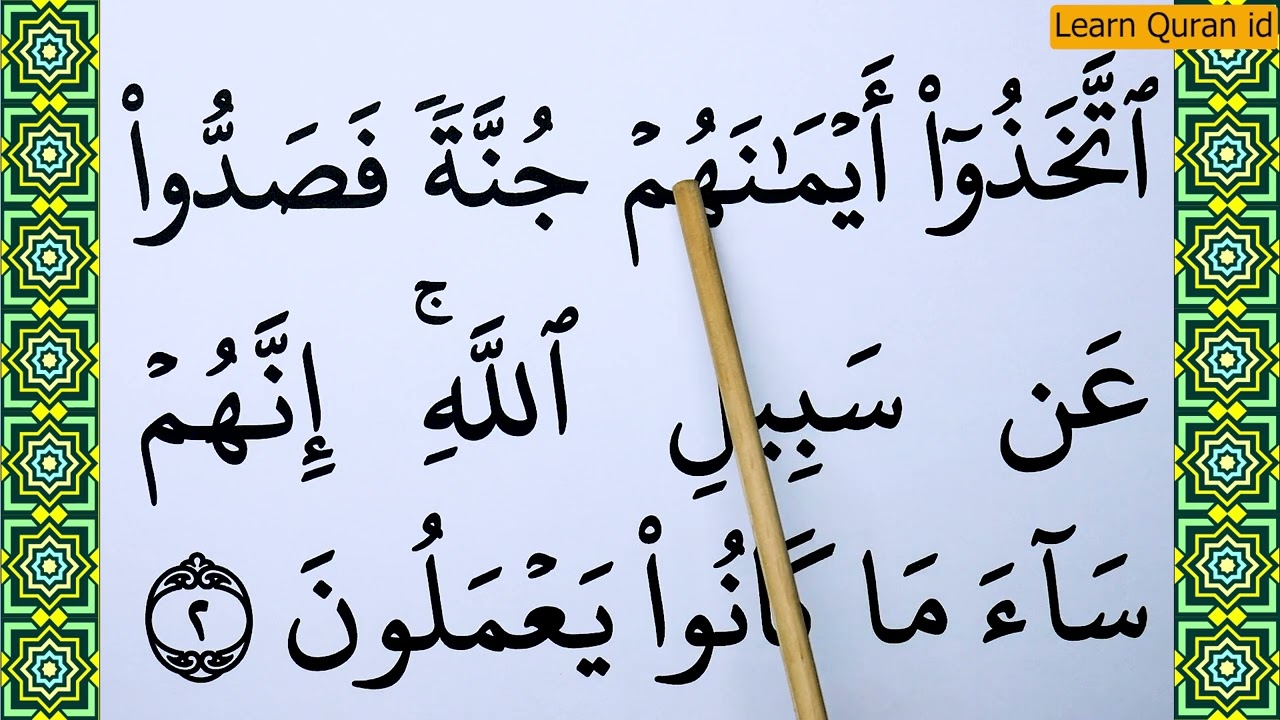 Learn Quran id
ٱتَّخَذُوٓا۟ أَيْمَـٰنَهُمْ جُنَّةً فَصَدُّوا۟
عَن سَبِيلِ ٱللَّهِ ۚ إِنَّهُمْ
سَآءَ مَا كَانُوا۟ يَعْمَلُونَ ٢